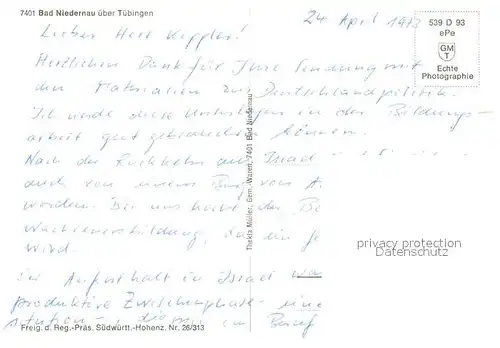 7401 Bad Niedernau über Tübingen
24 April 1973
539 D 93
ePe
GM
T
Echte
Photographie
Lieber Herr Keppler!
Herzlichen Dank für Ihre Sendung mit
den Materialien zur Deutschlandpolitik.
Ich werde diese Unterlagen in der Bildungs-
arbeit gut gebrauchen können.
Nach der Rückkehr aus Israel
auch von einem vom A.
worden. Bei uns der Be
das ein
wird.
Der Aufenthalt in Israel war
produktive Zwischenphase - eine
im Beruf
Thekla Müller, Gem.-Waren, 7401 Bad Niedernau
privacy protection
Datenschutz
Freig. d. Reg.-Präs. Südwürtt.-Hohenz. Nr. 26/313